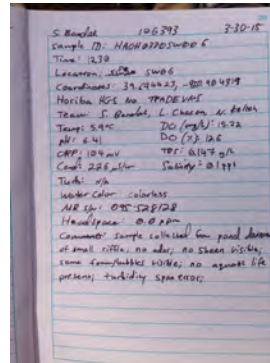 S. Baralak 106393 3-30-15
Sample ID: HAOH0330SW006
Time: 1230
Location: SW06
Coordinates: 39.
Horiba HGS No.
Team: S. Baralak, L. Chacon, N.
Temp: 5.9°C DO (mg/L): 15.22
pH: 6.41 DO (%): 126
ORP: 104 mV TDS: 0.147 g/L
Cond: 226 µS/cm Salinity: 0.1 ppt
Turb: n/a
Water Color: colorless
MR S/N: 095-528128
Headspace: 0.0 ppm
Comments: sample collected from pond
of small riffle; no odor; no sheen visible;
some foam/bubbles visible; no aquatic life
present; turbidity span error;